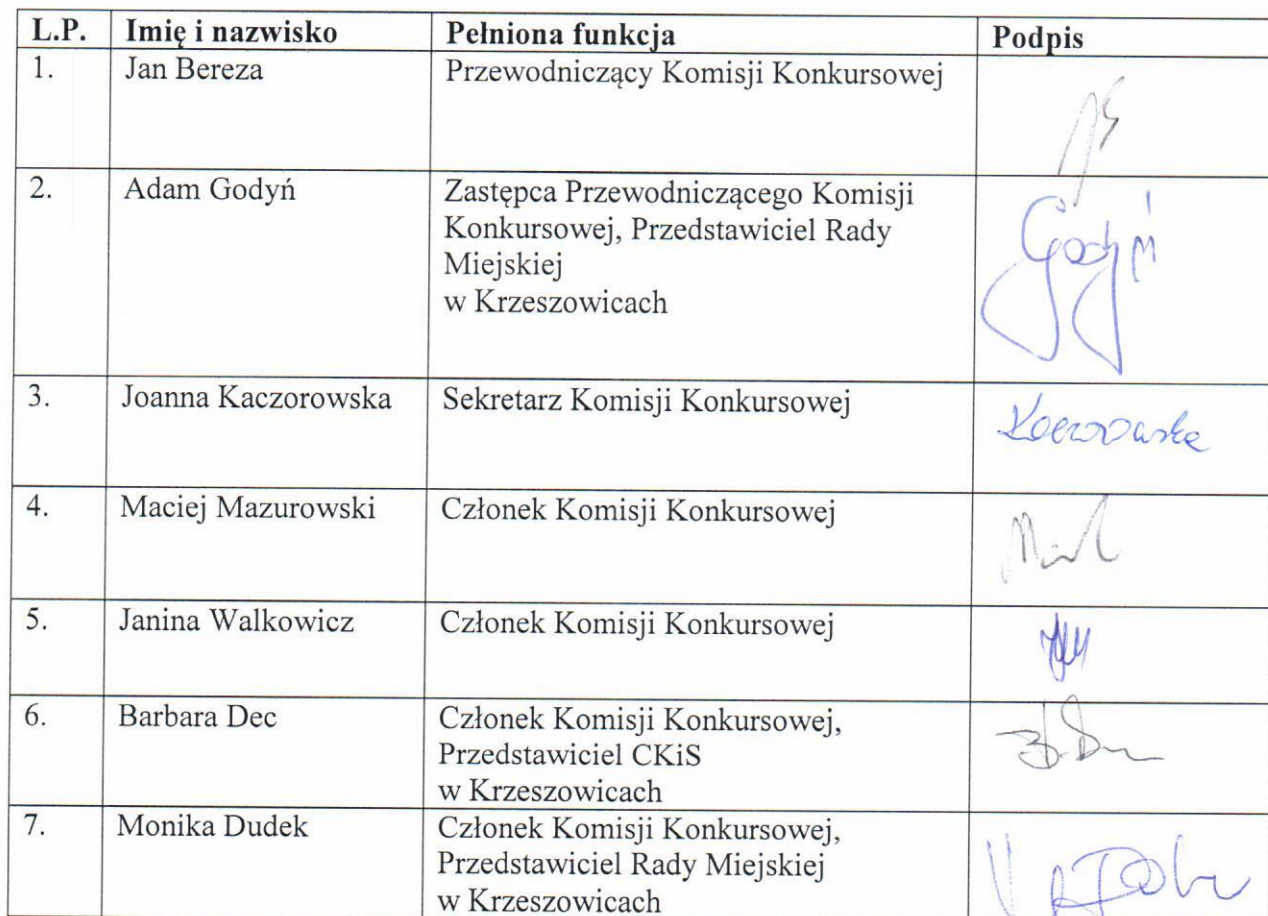 L.P. Imię i nazwisko Pełniona funkcja Podpis
1. Jan Bereza Przewodniczący Komisji Konkursowej
2. Adam Godyń Zastępca Przewodniczącego Komisji
Konkursowej, Przedstawiciel Rady
Miejskiej
w Krzeszowicach
Godyń
3. Joanna Kaczorowska Sekretarz Komisji Konkursowej
Kaczorowska
4. Maciej Mazurowski Członek Komisji Konkursowej
5. Janina Walkowicz Członek Komisji Konkursowej
6. Barbara Dec Członek Komisji Konkursowej,
Przedstawiciel CKiS
w Krzeszowicach
7. Monika Dudek Członek Komisji Konkursowej,
Przedstawiciel Rady Miejskiej
w Krzeszowicach